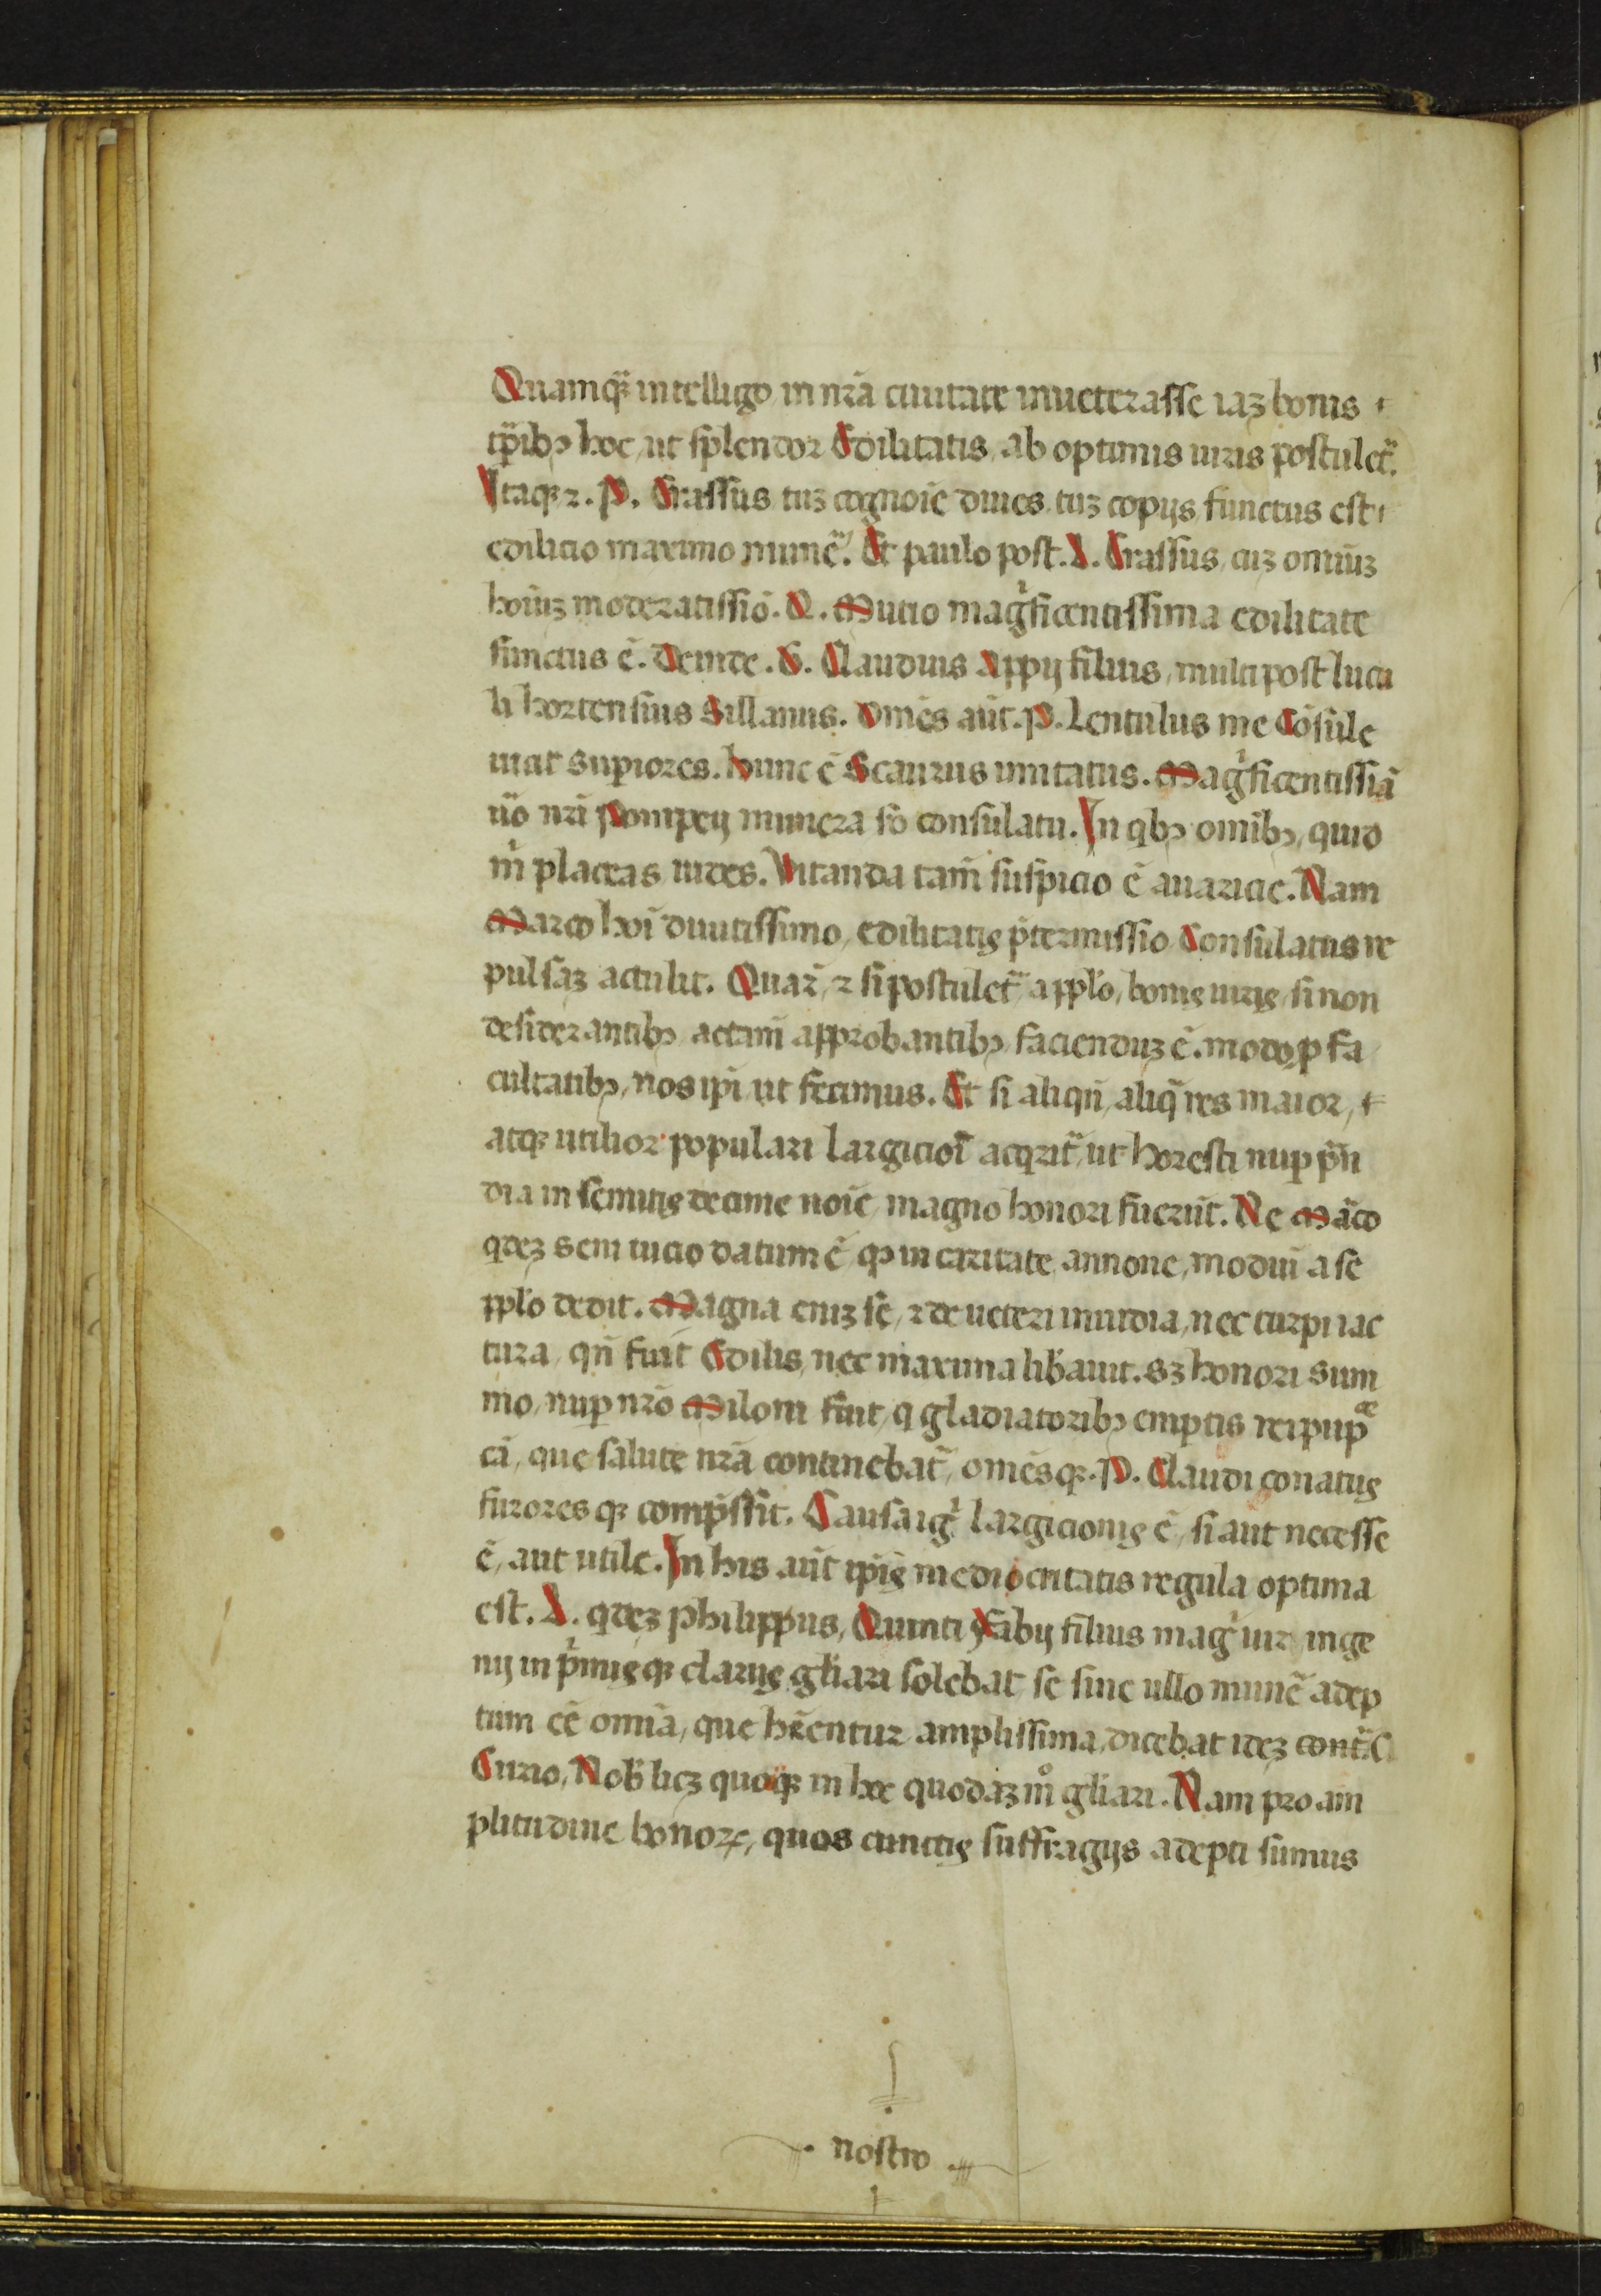 Quamqꝫ intelligo in nrā ciuitate inueterasse iaꝫ bonis
tꝑibꝫ hoc, ut splendor Edilitatis, ab optimis uiris postulet᷑.
Itaqꝫ ⁊. P. Crassus tuꝫ cognoīe diues, tuꝫ copijs, functus est
edilicio maximo munē. Et paulo post. L. Crassus, cuꝫ omniuꝫ
hoīuꝫ moderatissiō. Q. Mutio magͥficentissima edilitate
functus ē. Deinde. G. Claudius Appij filius, multi post lucu
li hortensius Sillanus. Omēs aūt. P. Lentulus me Cōsule
uicit supiores. hunc ē Scaurus imitatus. Magͥficentissiā
uo nr̄i Pompeij munera so consulatu. In qbꝫ omībꝫ, quid
mͥ placeas uides. Vitanda tam̄ suspicio ē auaricie. Nam
Marco hoī diuitissimo, edilitatis p̄termissio Consulatus re
pulsaꝫ actulit. Quar̄, ⁊ si postulet᷑ a pplo, bonis uiris, si non
desiderantibꝫ actam̄ approbantibꝫ facienduꝫ ē. modo ꝓ fa
cultatibꝫ, nos ip̄i ut fecimus. Et si aliqn̄, aliq̄ res maior,
atqꝫ utilior populari largicioī acqrit᷑, ut horesti nuꝑ prān
dia in semitis decime noīe, magno honori fuerūt. Ne Marco
qdeꝫ sem tucio datum ē, qꝫ in caritate annone, modiū asse
pplo dedit. Magna eniꝫ se, ⁊ de ueteri inuidia, nec turpi iac
tura, qn̄ fuit Edilis, nec maxima libauit. sꝫ honori sum
mo, nuꝑ nr̄o Miloni fuit, q gladiatoribꝫ emptis reipup
ce, que salute nrā continebat᷑, omēsqꝫ. P. Claudi conatus
furoresqꝫ comp̄ssit. Causa igͥ largicionis ē, si aut necesse
ē, aut utile. In his aūt ip̄is mediocritatis regula optima
est. L. qdeꝫ philippus, Quinti Fabij filius magͥ uir inge
nij in p̄misqꝫ clarus gl̄iari solebat, se sine ullo munē adep
tum eē omīa, que hr̄entur amplissima, dicebat ideꝫ cont᷑ C.
Curio, Nob̄ licꝫ quoqꝫ in hoc quodaꝫ mͦ gl̄iari. Nam pro am
plitudine honoꝝ, quos cunctis suffragijs adepti sumus
nostro